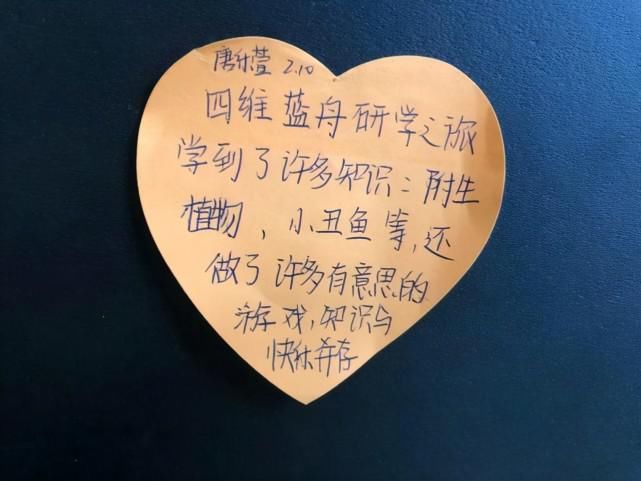 唐乐萱 2.10
四维蓝舟研学之旅
学到了许多知识：附生
植物，小丑鱼等，还
做了许多有意思的
游戏，知识与
快乐并存